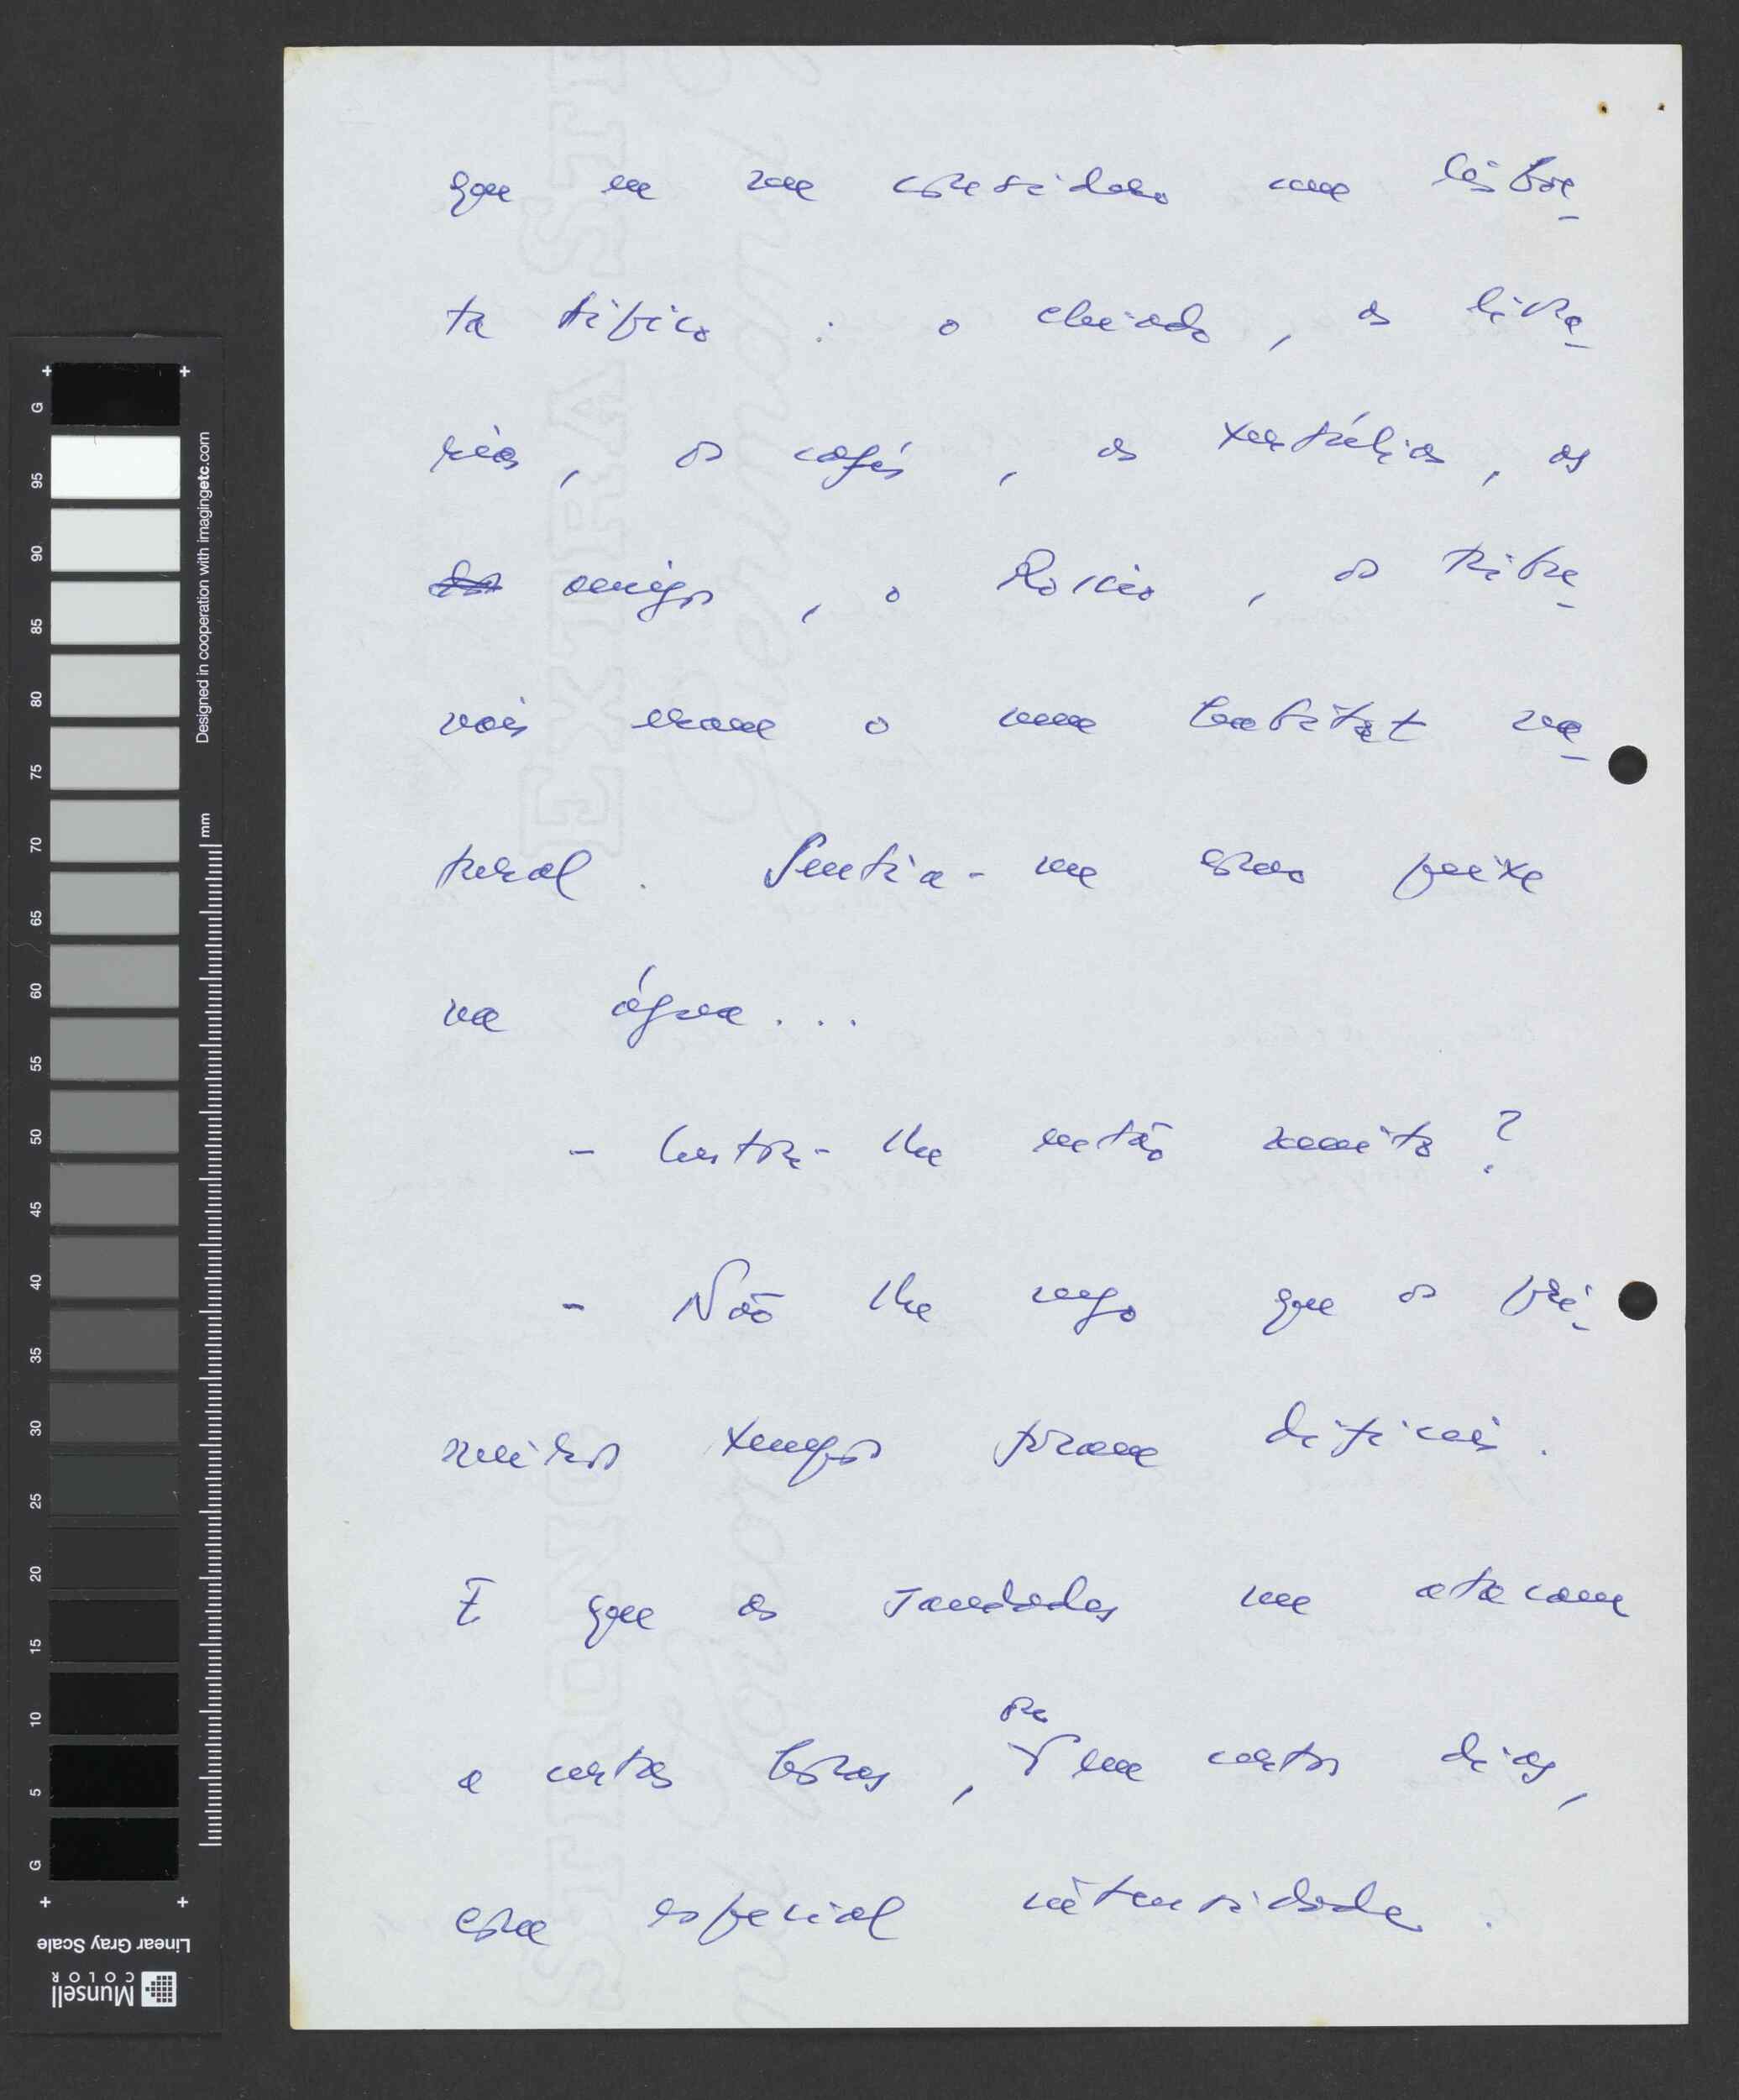 que eu me considero um lisboe-
ta típico: o chiado, as livra-
rias, os cafés, as tertúlias, os
amigos, o Rossio, os tribu-
nais eram o meu habitat na-
tural. Sentia-me como peixe
na água...
- Custou-lhe então muito?
- Não lhe nego que os pri-
meiros tempos foram difíceis.
E que as saudades me atacam
a certas horas, ou em certos dias,
com especial intensidade.
G 95 90 85 80 75 70 65 60 55 50 45 40 35 30 25 20 15 10 5 G
Designed in cooperation with imagingetc.com
mm
Linear Gray Scale
Munsell
COLOR